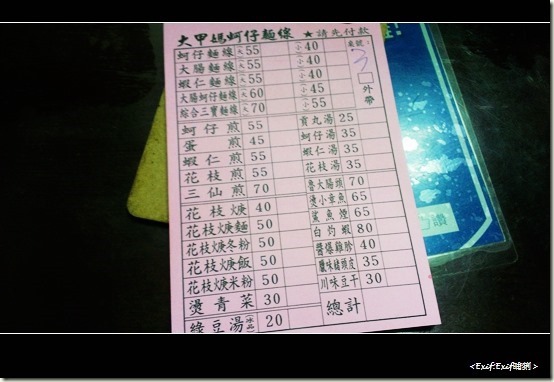 大甲媽蚵仔麵線 ★請先付款
蚵仔麵線 大 55 小 40 桌號:
大腸麵線 大 55 小 40 3
蝦仁麵線 大 55 小 40 外帶
大腸蚵仔麵線 大 60 小 45
綜合三寶麵線 大 70 小 55
蚵仔煎 55 貢丸湯 25
蛋煎 45 蚵仔湯 35
蝦仁煎 55 蝦仁湯 35
花枝煎 55 花枝湯 35
三仙煎 70 魯大腸頭 70
花枝焿 40 燙小章魚 65
花枝焿麵 50 鯊魚煙 65
花枝焿冬粉 50 白灼蝦 80
花枝焿飯 50 醬爆雞胗 40
花枝焿米粉 50 臘味豬頭皮 35
燙青菜 30 川味豆干 30
綠豆湯 20 總計
讚
<Exif:Exif